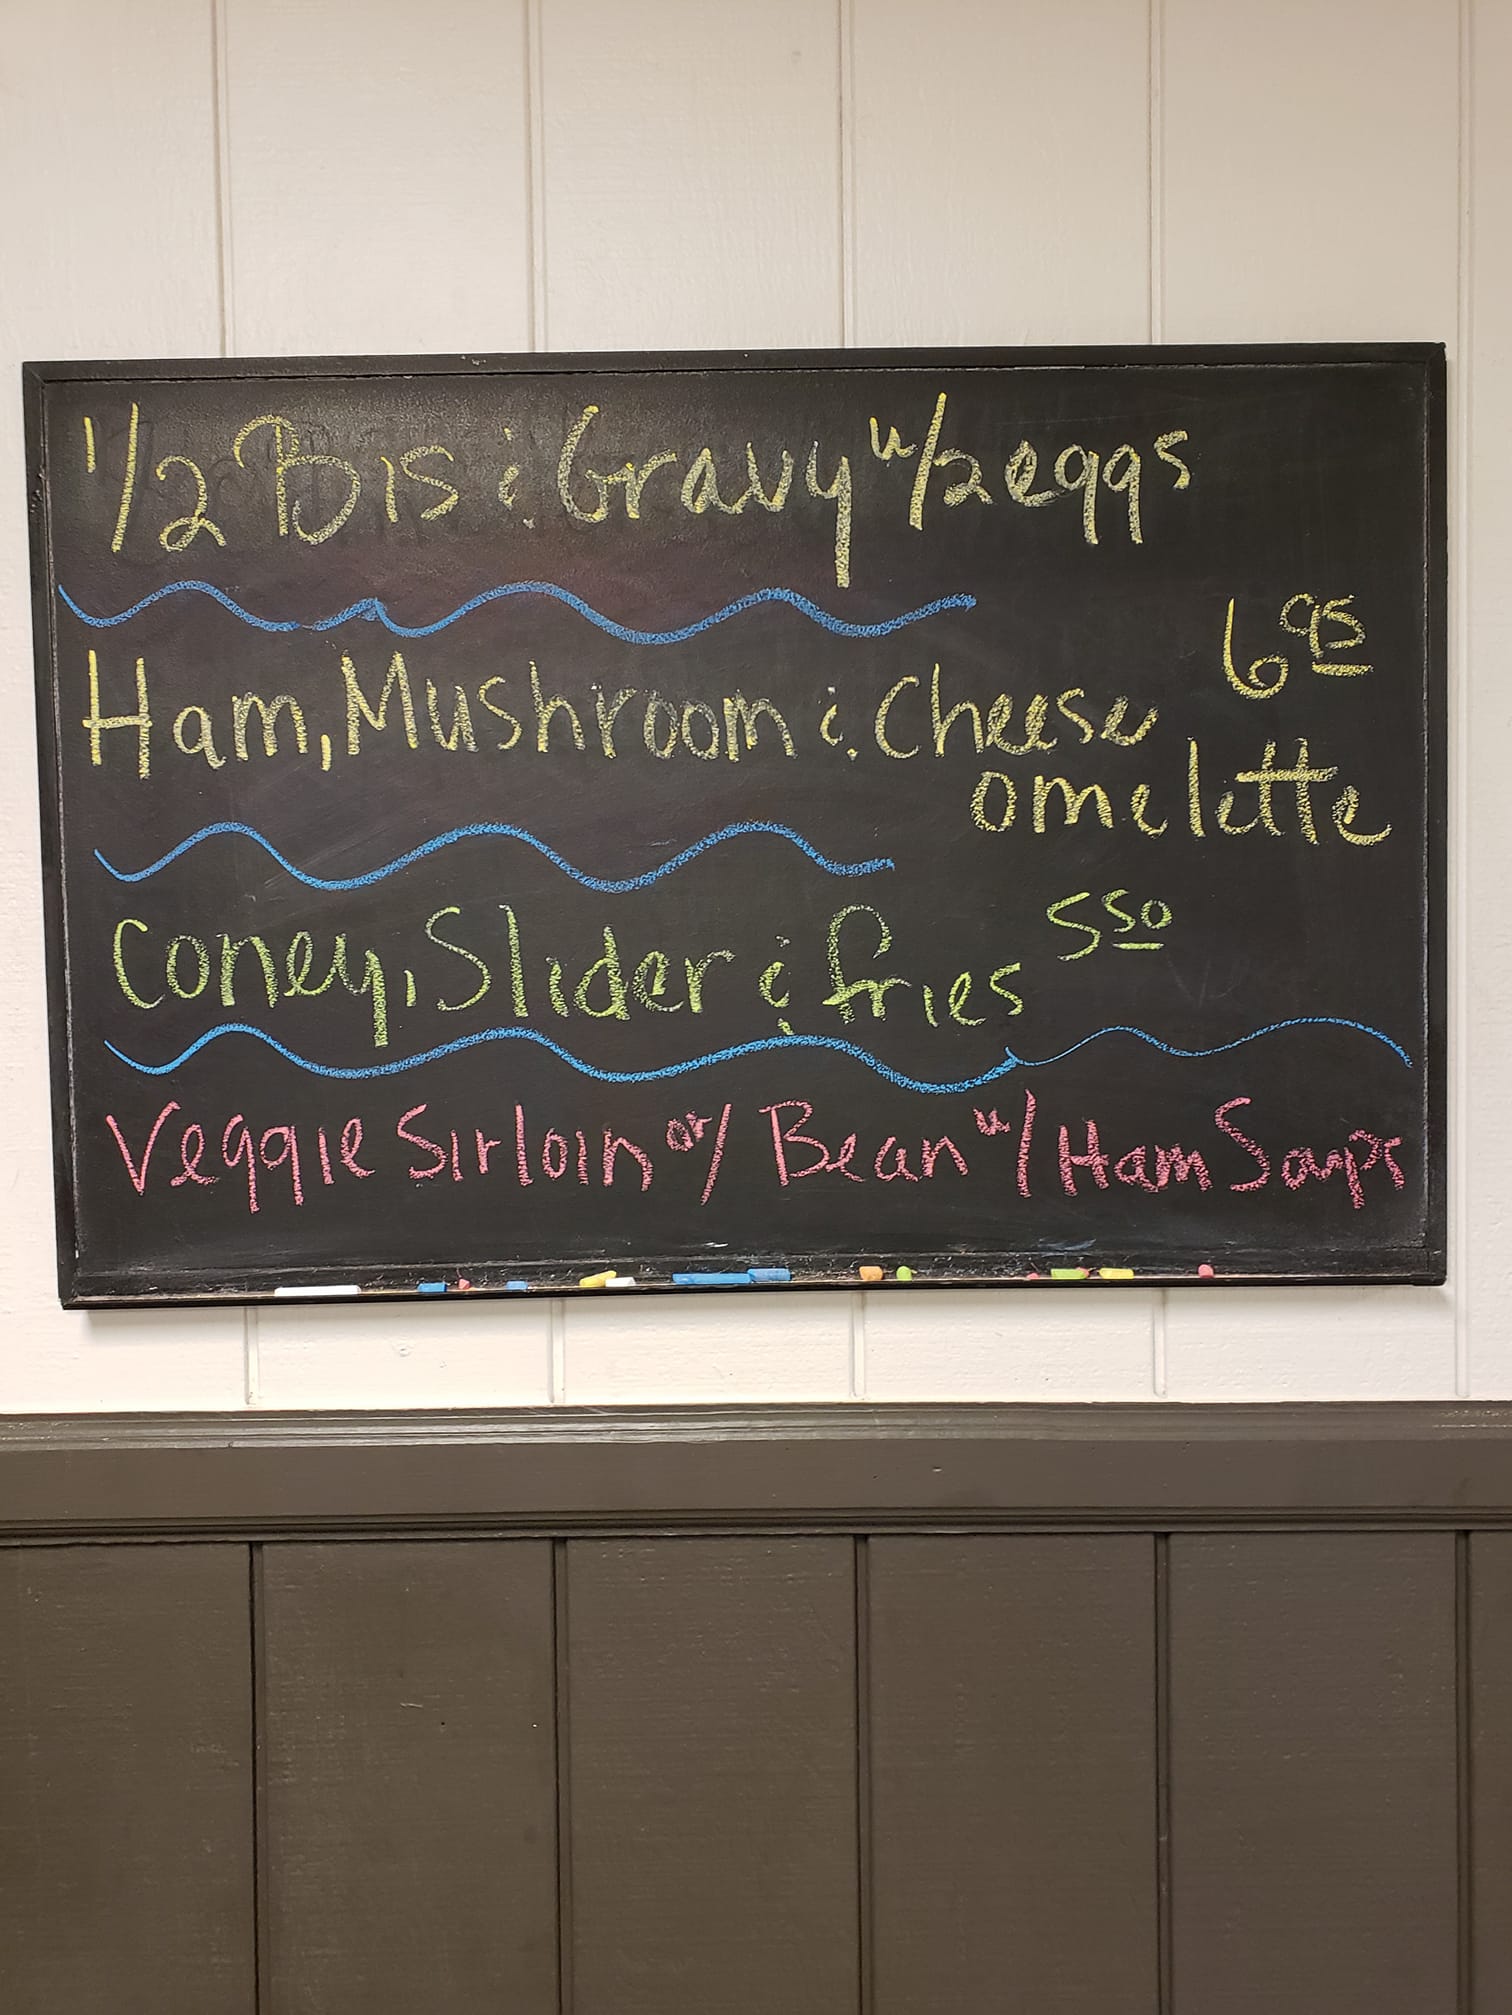 1/2 Bis & Gravy w/2 eggs
6 95
Ham, Mushroom & Cheese
omelette
Coney, Slider & fries 5 50
Veggie Sirloin or/ Bean w/ Ham Soups